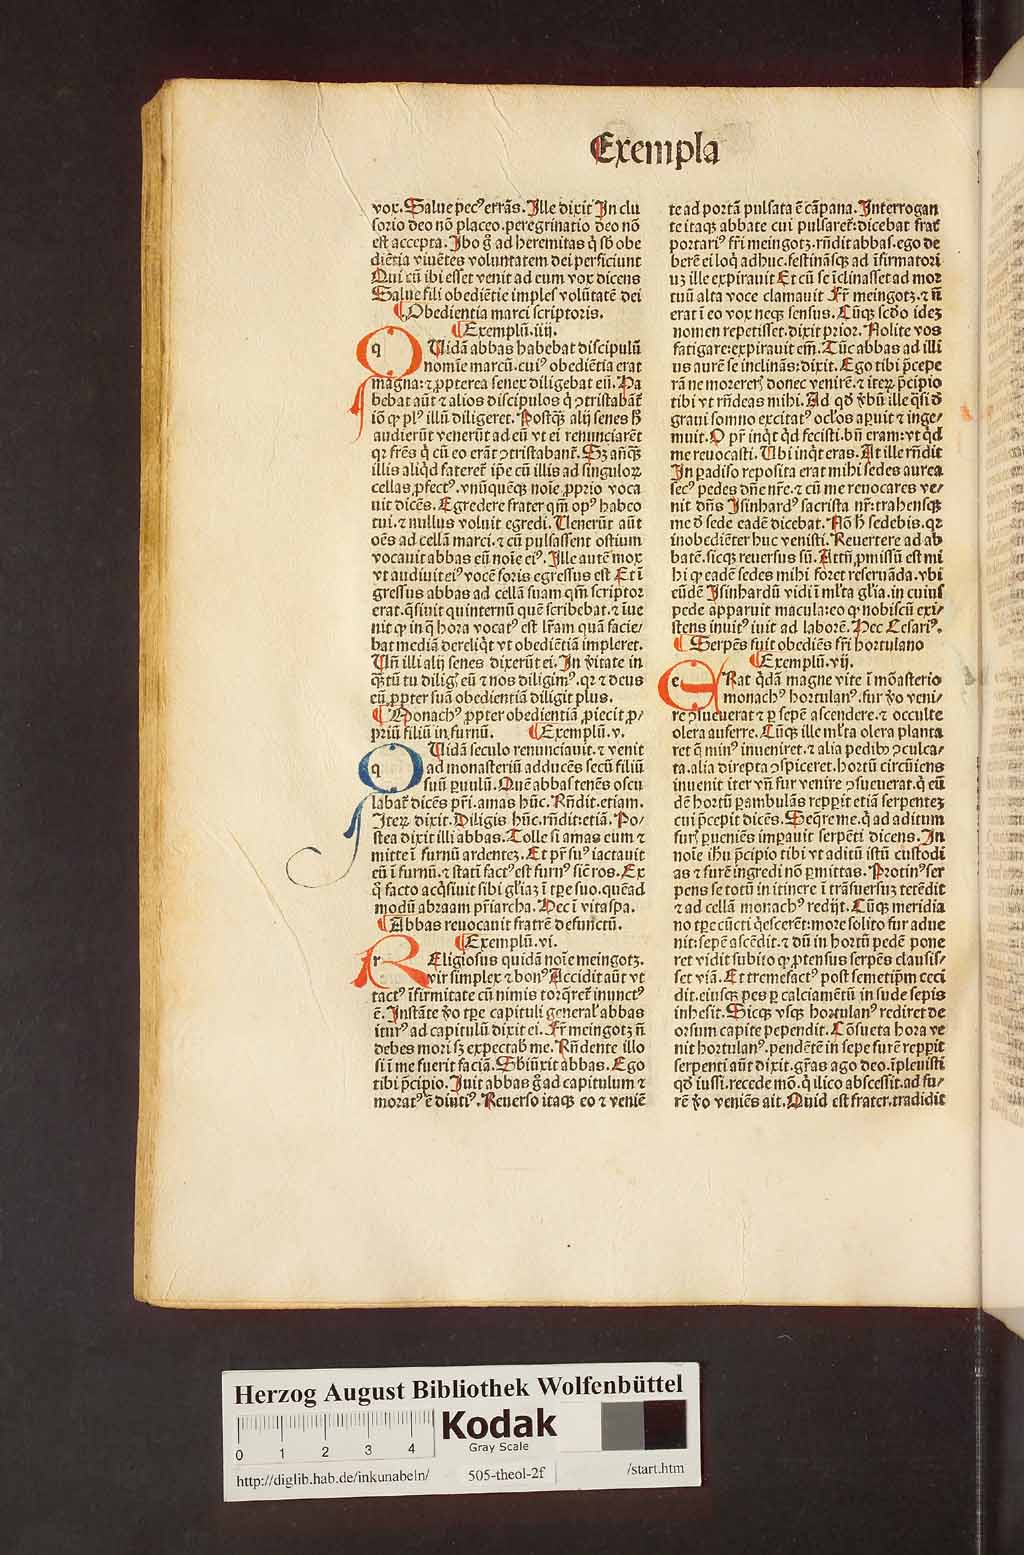 Exempla
vox. Salue pecꝰ errãs. Ille dixit In clu
sorio deo nõ placeo. peregrinatio deo nõ
est accepta. Ibo g̃ ad heremitas q̃ sb̃ obe
diẽtia viuẽtes voluntatem dei perficiunt
Qui cũ ibi esset venit ad eum vox dicens
Salue fili obediẽtie imples volũtatẽ dei
¶ Obedientia marci scriptoris.
¶ Exemplũ. iiij.
q Uidã abbas habebat discipulũ
nomĩe marcũ. cuiꝰ obediẽtia erat
magna: ⁊ ꝓpterea senex diligebat eũ. Ha
bebat aũt ⁊ alios discipulos q̃ ↄtristabãt̃
iõ ꝙ plꝰ illũ diligeret. Postqꝫ alij senes h̃
audierũt venerũt ad eũ vt ei renunciarẽt
qꝛ fr̃es q̃ cũ eo erãt ↄtristabant̃. Sꝫ añqꝫ
illis aliqd̃ fateret̃ ip̃e cũ illis ad singuloꝝ
cellas ꝓfectꝰ. vnũquẽqꝫ noĩe ꝓprio voca
uit dicẽs. Egredere frater qm̃ opꝰ habeo
tui. ⁊ nullus voluit egredi. Uenerũt aũt
oẽs ad cellã marci. ⁊ cũ pulsassent ostium
vocauit abbas eũ noĩe eiꝰ. Ille autẽ mox
vt audiuit eiꝰ vocẽ foris egressus est Et ĩ
gressus abbas ad cellã suam qm̃ scriptor
erat. q̃siuit quinternũ quẽ scribebat. ⁊ ĩue
nit ꝙ in q̃ hora vocatꝰ est lr̃am quã facie/
bat mediã dereliq̃t vt obediẽtiã impleret.
Uñ illi alij senes dixerũt ei. In ṽitate in
qꝫtũ tu dilig̃ eũ ⁊ nos diligimꝰ. qꝛ ⁊ deus
eũ ꝓpter suã obedientiã diligit plus.
¶ Monachꝰ ꝓpter obedientiã ꝓiecit ꝓ/
priũ filiũ in furnũ. ¶ Exemplũ. v.
q Uidã seculo renunciauit. ⁊ venit
ad monasteriũ adducẽs secũ filiũ
suũ ꝑuulũ. Quẽ abbas tenẽs oscu
labat̃ dicẽs pr̃i. amas hũc. Rñdit. etiam.
Iteꝝ dixit. Diligis hũc. rñdit: etiã. Po/
stea dixit illi abbas. Tolle si amas eum ⁊
mitte ĩ furnũ ardenteꝫ. Et pr̃ suꝰ iactauit
eũ ĩ furnũ. ⁊ statĩ factꝰ est furnꝰ sic̃ ros. Ex
q̃ facto acq̃siuit sibi gl̃iaꝫ ĩ tp̃e suo. quẽad
modũ abraam pr̃iarcha. Hec ĩ vitaspa.
¶ Abbas reuocauit fratrẽ defunctũ.
¶ Exemplũ. vi.
r Eligiosus quidã noĩe meingotꝫ.
vir simplex ⁊ bonꝰ Accidit aũt vt
tactꝰ ĩfirmitate cũ nimis torq̃ret̃ inunctꝰ
ẽ. Instãte ṽo tp̃e capituli general̃ abbas
iturꝰ ad capitulũ dixit ei. Fr̃ meingotꝫ ñ
debes mori sꝫ expectab̃ me. Rñdente illo
si ĩ me fuerit faciã. Sb̃iũxit abbas. Ego
tibi p̃cipio. Iuit abbas g̃ ad capitulum ⁊
moratꝰ ẽ diutiꝰ. Reuerso itaqꝫ eo ⁊ veniẽ
te ad portã pulsata ẽ cãpana. Interrogan
te itaqꝫ abbate cui pulsaret̃: dicebat frat̃
portariꝰ fr̃i meingotꝫ. rñdit abbas. ego de
berẽ ei loq̃ adhuc. festinãsqꝫ ad ĩfirmatori
uꝫ ille expirauit Et cũ se ĩclinasset ad mor
tuũ alta voce clamauit Fr̃ meingotꝫ. ⁊ ñ
erat ĩ eo vox neqꝫ sensus. Cũqꝫ scd̃o ideꝫ
nomen repetisset. dixit prior. Nolite vos
fatigare: expirauit em̃. Tũc abbas ad illi
us aurẽ se inclinãs: dixit. Ego tibi p̃cepe
rã ne morereꝭ donec venirẽ. ⁊ iteꝝ p̃cipio
tibi vt rñdeas mihi. Ad qd̃ ṽbũ ille q̃si d̃
graui somno excitatꝰ ocl̃os aꝑuit ⁊ inge/
muit. O pr̃ inq̃t qd̃ fecisti. bñ eram: vt qd̃
me reuocasti. Ubi inq̃t eras. At ille rñdit
In ꝑadiso reposita erat mihi sedes aurea
secꝰ pedes dñe nr̃e. ⁊ cũ me renocares ve/
nit dñs Isinhardꝰ sacrista nr̃: trahensqꝫ
me d̃ sede eadẽ dicebat. Nõ h̃ sedebis. qꝛ
inobediẽter huc venisti. Reuertere ad ab
batẽ. sicqꝫ reuersus sũ. Attñ ꝓmissũ est mi
hi ꝙ eadẽ sedes mihi foret reseruãda. vbi
eũdẽ Isinhardũ vidi ĩ ml̃ta gl̃ia. in cuius
pede apparuit macula: eo ꝙ nobiscũ exi/
stens inuitꝰ iuit ad laborẽ. Hec Cesariꝰ.
¶ Serpẽs fuit obediẽs fr̃i hortulano
¶ Exemplũ. vij.
e Rat qd̃ã magne vite ĩ mõasterio
monachꝰ hortulanꝰ. fur ṽo veni/
re ↄsueuerat ⁊ ꝑ sepẽ ascendere. ⁊ occulte
olera auferre. Cũqꝫ ille ml̃ta olera planta
ret q̃ minꝰ inueniret. ⁊ alia pedibꝰ ↄculca/
ta. alia direpta ↄspiceret. hortũ circũiens
inuenit iter vñ fur venire ↄsueuerat. q̃ eũ
dẽ hortũ ꝑambulãs reꝑꝑit etiã serpenteꝫ
cui p̃cepit dicẽs. Seq̃re me. q̃ ad aditum
furꝭ ꝑueniẽs imꝑauit serpẽti dicens. In
noĩe ih̃u p̃cipio tibi vt aditũ istũ custodi
as ⁊ furẽ ingredi nõ ꝑmittas. Protinꝰ ser
pens se totũ in itinere ĩ trãsuersuꝫ tetẽdit
⁊ ad cellã monachꝰ redijt. Cũqꝫ meridia
no tp̃e cũcti q̃escerẽt: more solito fur adue
nit: sepẽ ascẽdit. ⁊ dũ in hortũ pedẽ pone
ret vidit subito ꝙ ꝓtensus serpẽs clausis/
set viã. Et tremefactꝰ post semetip̃m ceci
dit. eiusqꝫ pes ꝑ calciamẽtũ in sude sepis
inhesit. Sicqꝫ vsqꝫ hortulanꝰ rediret de
orsum capite pependit. Cõsueta hora ve
nit hortulanꝰ. pendẽtẽ in sepe furẽ reꝑꝑit
serpenti aũt dixit. gr̃as ago deo. ĩpleuisti
qd̃ iussi. recede mõ. q̃ ilico abscessit. ad fu/
rẽ ṽo veniẽs ait. Quid est frater. tradidit
Herzog August Bibliothek Wolfenbüttel
0 1 2 3 4
Kodak
Gray Scale
http://diglib.hab.de/inkunabeln/ 505-theol-2f /start.htm